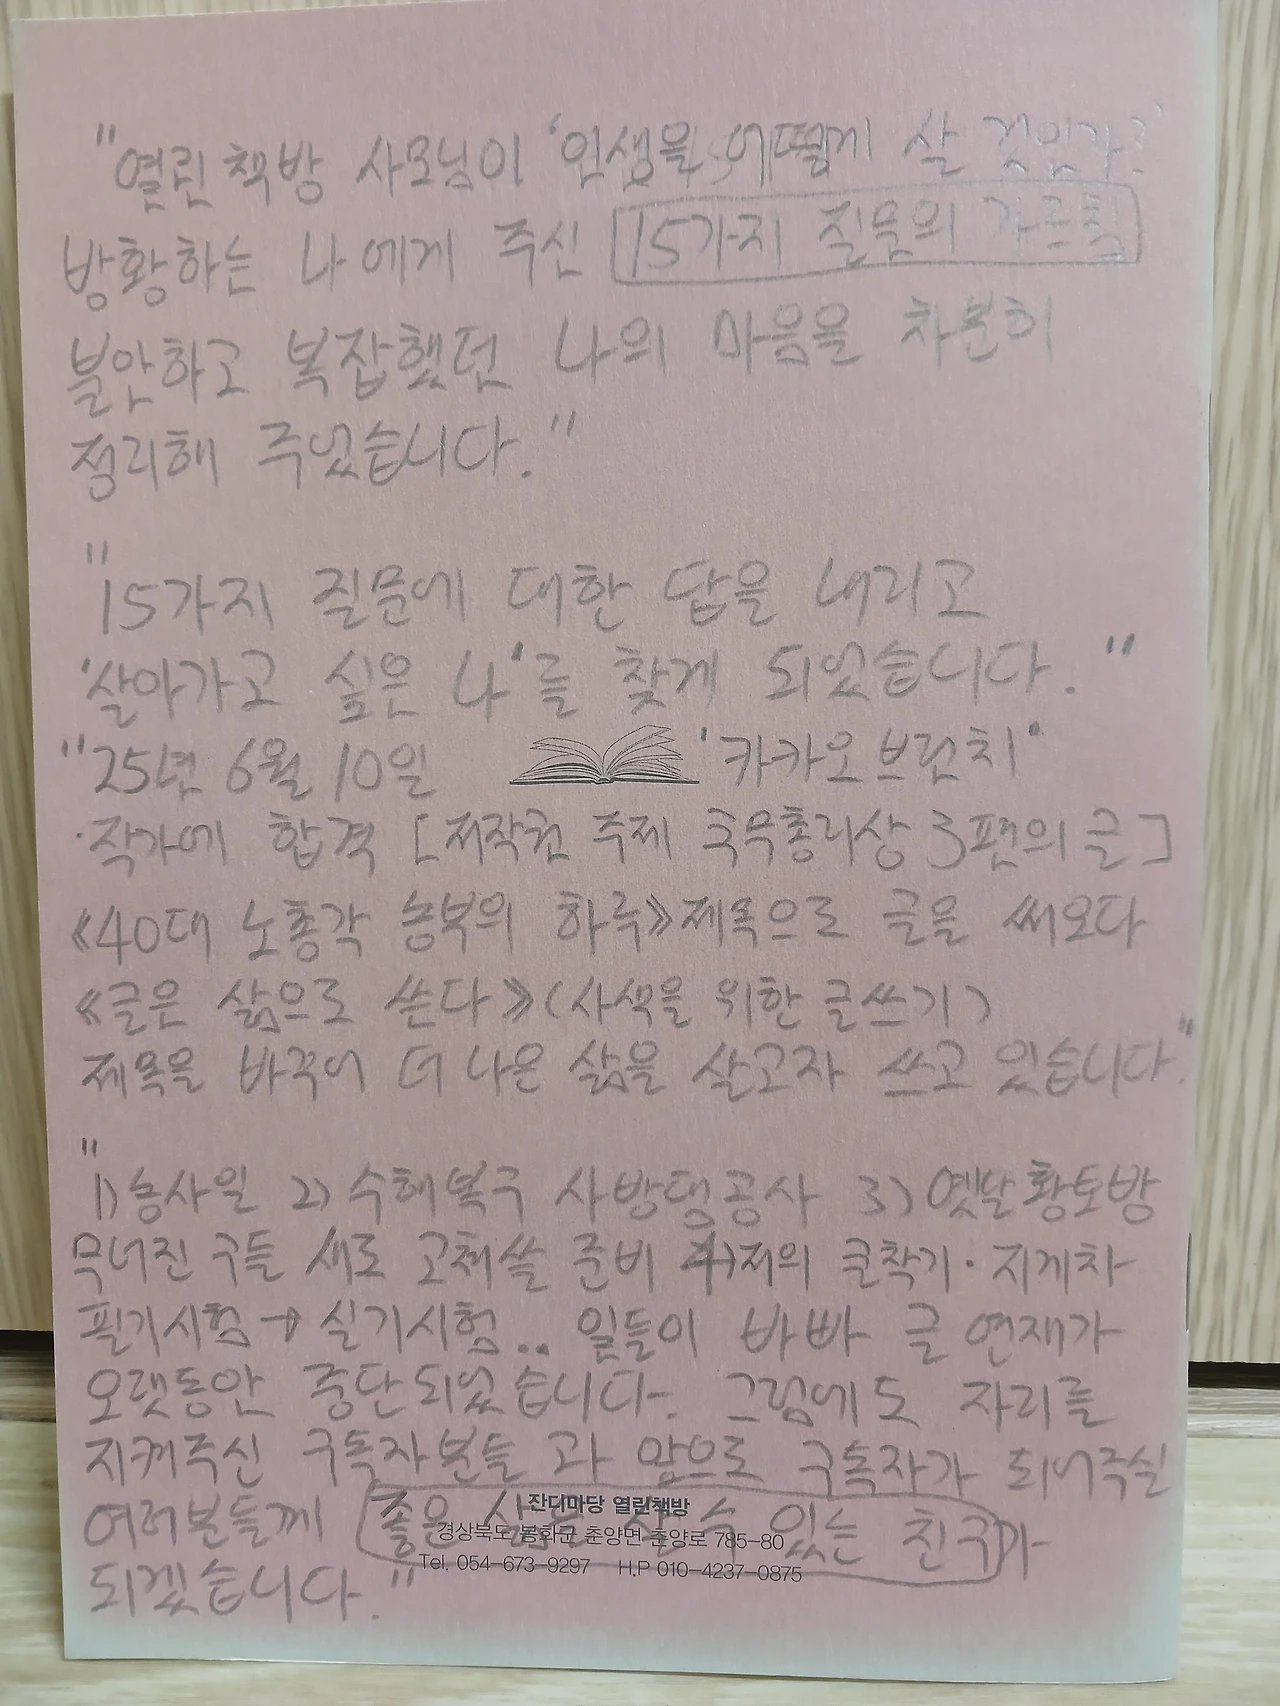 "열린책방 사모님이 '인생을 어떻게 살 것인가?'
방황하는 나에게 주신 15가지 질문의 가르침
불안하고 복잡했던 나의 마음을 차분히
정리해 주었습니다."
"15가지 질문에 대한 답을 내리고
'살아가고 싶은 나'를 찾게 되었습니다."
"25년 6월 10일 '카카오브런치'
·작가에 합격 [저작권 주제 국무총리상 3편의 글]
《40대 노총각 농부의 하루》제목으로 글을 써오다
《글은 삶으로 쓴다》(사색을 위한 글쓰기)
제목을 바꾸어 더 나은 삶을 살고자 쓰고 있습니다."
"1) 농사일 2) 수해복구 사방댐공사 3) 옛날황토방
무너진 구들 새로 고쳐쓸 준비 4)저의 굴착기·지게차
필기시험→실기시험.. 일들이 바빠 글 연재가
오랫동안 중단되었습니다. 그럼에도 자리를
지켜주신 구독자분들 과 앞으로 구독자가 되어주실
여러분들께 좋은 삶을 살 수 있는 친구가
잔디마당 열린책방
경상북도 봉화군 춘양면 춘양로 785-80
Tel. 054-673-9297 H.P 010-4237-0875
되겠습니다."